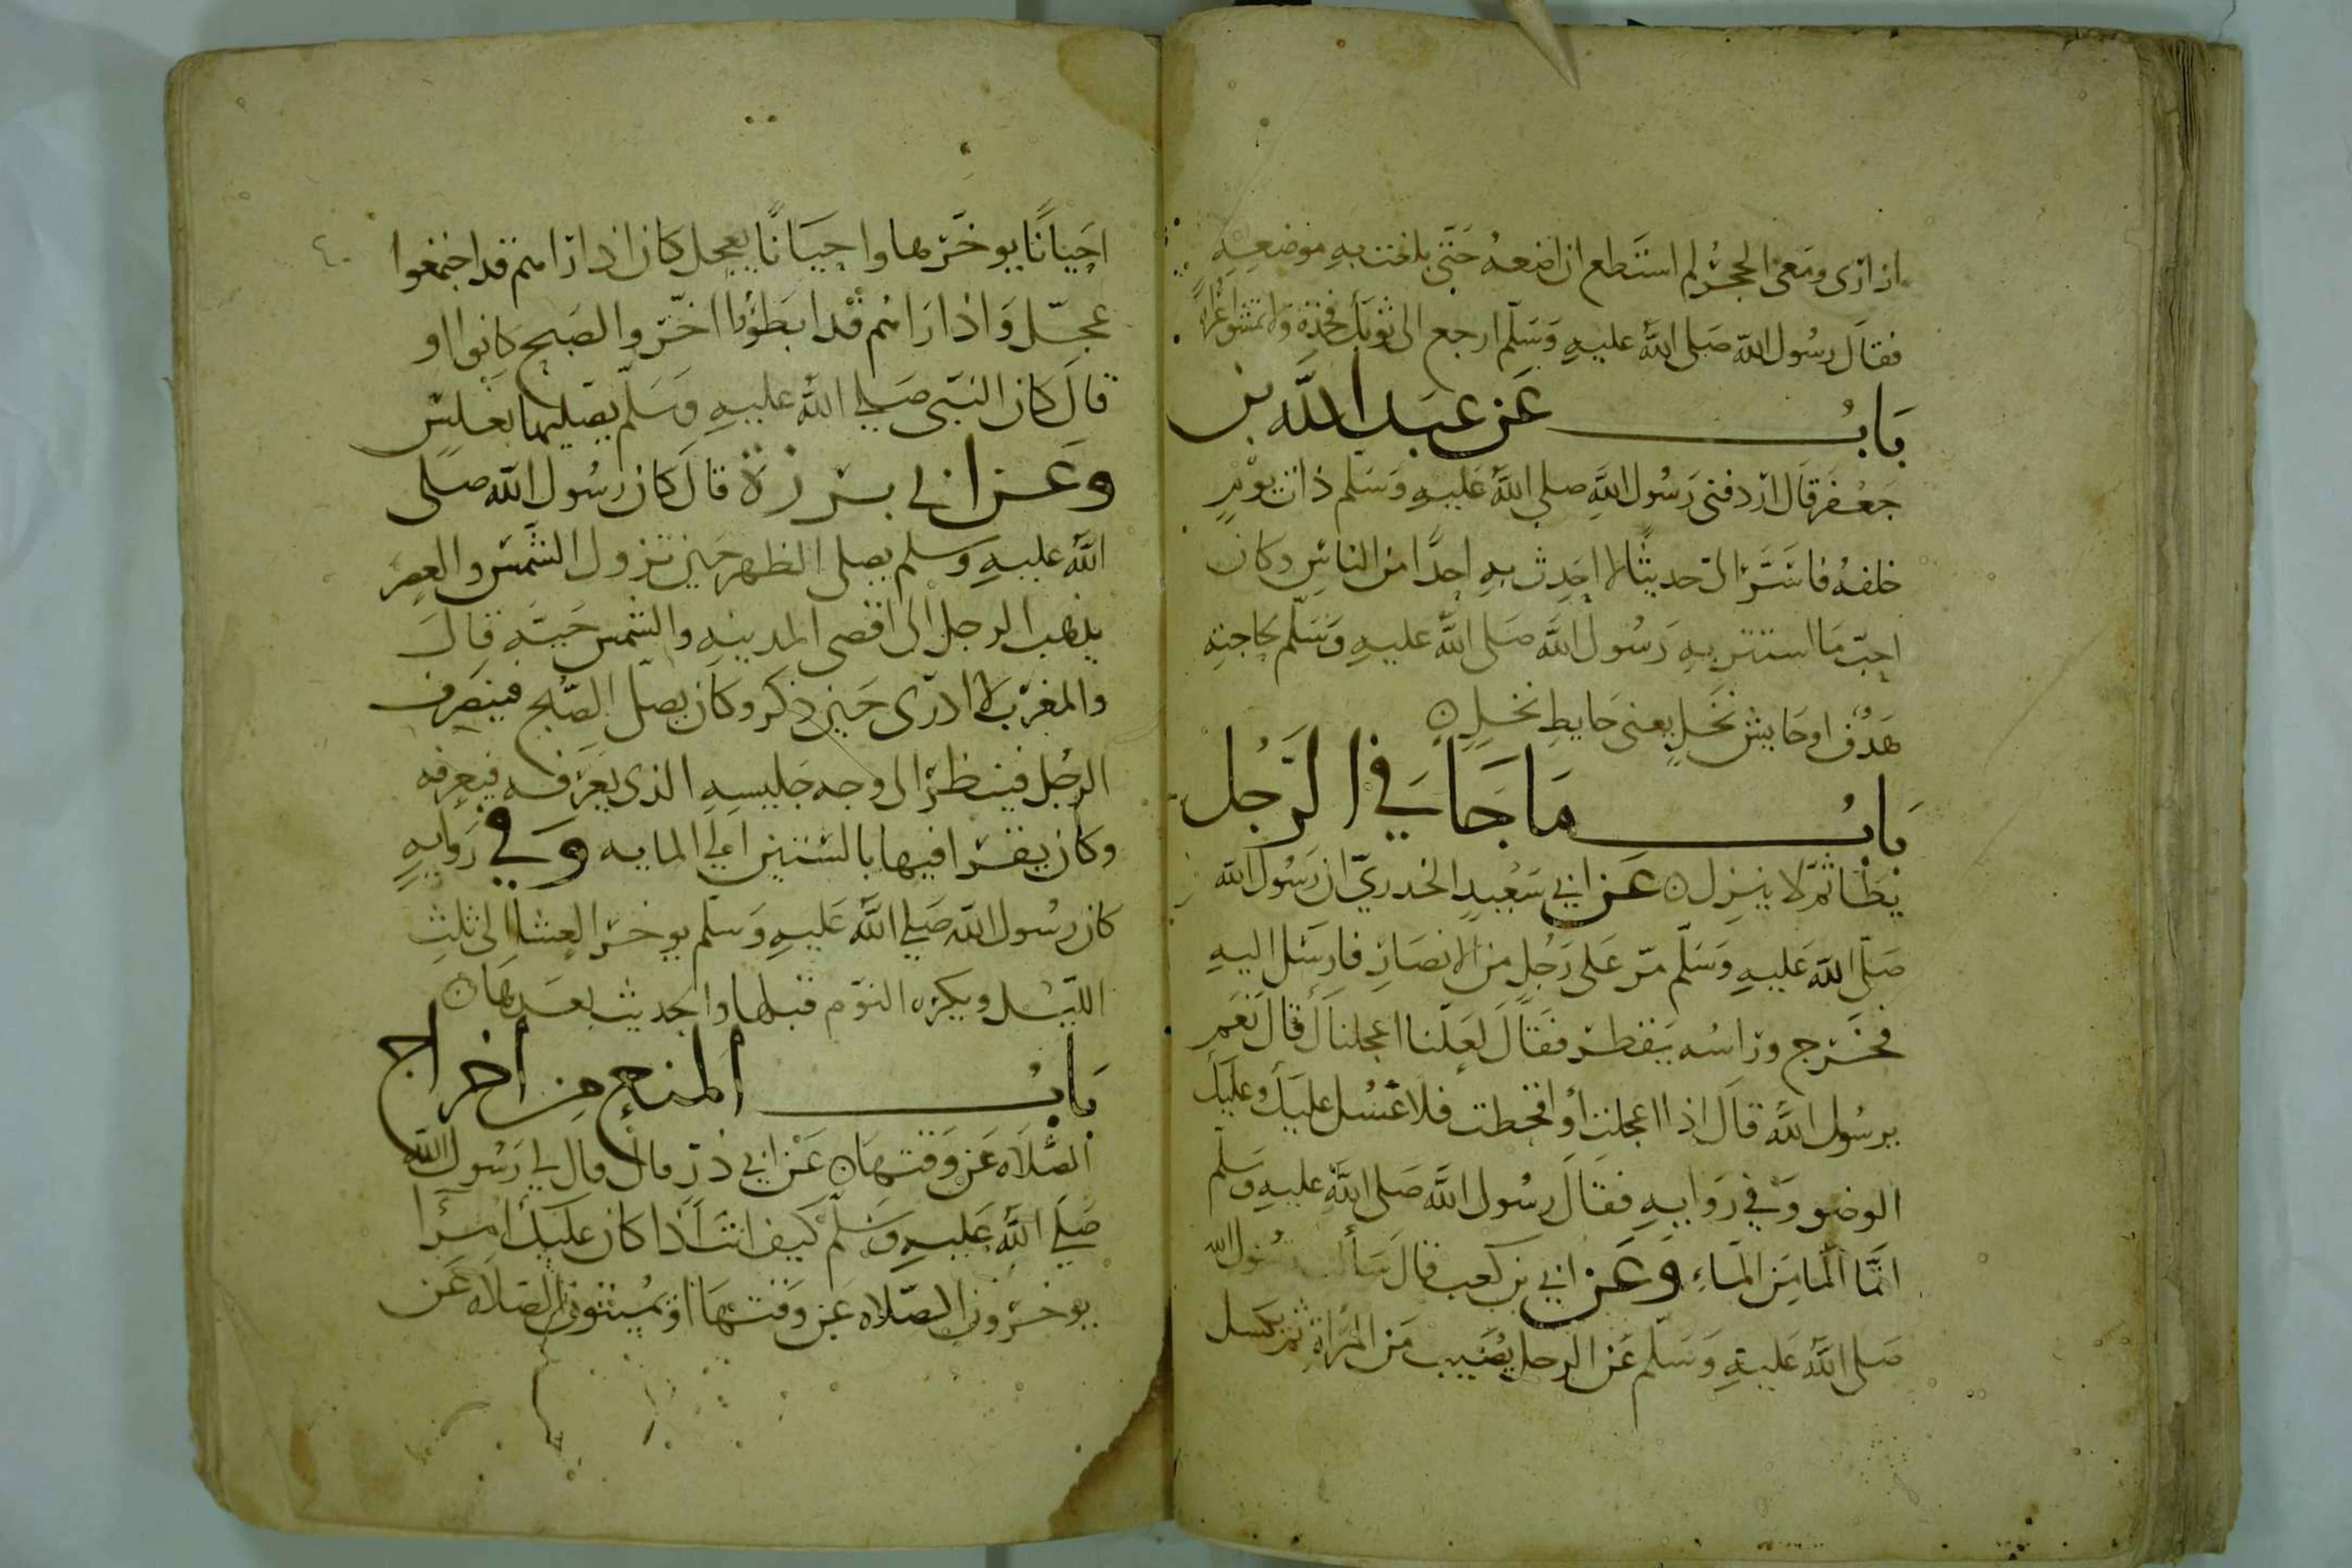 ازاري ومعي الحجر لم استطع ان اضعه حتى بلغت به موضعه
فقال رسول الله صلى الله عليه وسلم ارجع الى ثوبك فخذه ولا تمشوا عراة
بَابُ عَن عبد الله بن
جَعْفر قَال اردفني رَسُول الله صلى الله عَليهِ وَسَلم ذات يومٍ
خلفهُ فاسَرَّ اليّ حديثًا لا احَدِث بهِ احدًا من الناسِ وكان
احبّ مَا استتر بهِ رَسُول الله صَلى الله عليهِ وَسَلّم لحاجتِه
هَدَفٌ اوحَايش نَخلٍ يعني حايطِ نخلٍ
بَابُ مَا جَا في الرَّجُل
يَطَا ثمّ لا ينزل عَن ابي سَعْيدٍ الخدريّ ان رَسُول الله
صَلّى الله عَليهِ وَسَلّم مرّ عَلى رَجُلٍ من الانصَارِ فارسَل اليهِ
فخرَج ورَاسُه يَقطر فقَالَ لعَلّنا اعجلناكَ قالَ نَعَم
يرسُول الله قالَ اذا اعجلتَ أو اقحطت فلا غُسْل عليكَ وعليكَ
الوضو وَفي رَوايهٍ فقالَ رسُول الله صَلى الله عليهِ وَسَلّم
انَّمَا المَا مِنَ المَاءِ وَعَن ابي بن كعب قال سَألت رسُول الله
صَلى الله عَليهِ وَسَلّم عَن الرجل يُصَيب مَن المرْاةِ ثم يكسل
٤٠
احَيانًا يوخّرها واحيَانًا يعجل كان اذا راهم قد اجتمعوا
عجّل وَاذا رَاهُم قْد ابطَؤا اخّر والصَبح كانوا او
قالَ كان النبَي صَلى الله عليهِ وَسَلّم يصَليها بغلسٍ
وعَن ابي برزة قالَ كان رسُول الله صلى
الله عليهِ وسلم يصلي الظهر حَين تزول الشَّمسُ والعصر
يذهب الرجل الى اقصى المدينهِ والشمس حَيَّه قالَ
والمغرَب لا ادرى حَين ذكر وكان يصلّ الصّبْح فينصرف
الرجُل فينظر الى وجه جَليسهِ الذى يَعَرفه فيعرفه
وكان يقرا فيها بالستين الى المايه وَفي رَوايهٍ
كان رسُول الله صَلى الله عَليهِ وَسَلّم يوخر العِشا الى ثلثِ
الليْل ويكره النوّم قبلها والحديث بعدَها
بَابُ المنع من اخراج
الصَّلاه عَن وَقتهَا عَن ابي ذرّ قال قال لي رَسُول الله
صَلى الله عَليهِ وَسَلّم كيف انتَ اذا كان عليكَ امراُ
يوخرون الصّلاه عَن وَقتهَا او يُميتون الصَلاه عَن